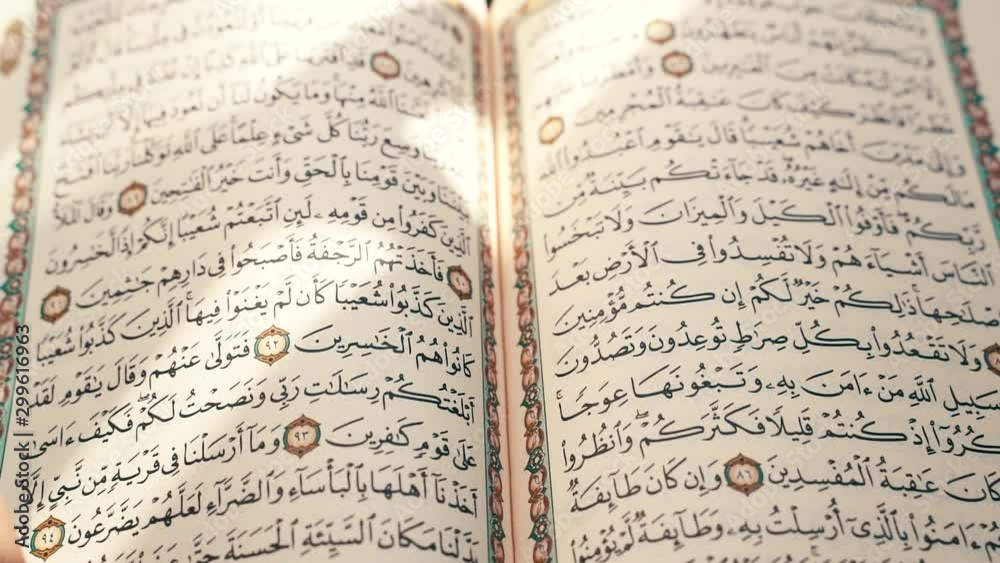 قَرۡيَتِكُمۡۖ إِنَّهُمۡ أُنَاسٞ يَتَطَهَّرُونَ
كَانَتۡ مِنَ ٱلۡغَٰبِرِينَ وَأَمۡطَرۡنَا عَلَيۡهِم
مَّطَرٗاۖ فَٱنظُرۡ كَيۡفَ كَانَ عَٰقِبَةُ ٱلۡمُجۡرِمِينَ
وَإِلَىٰ مَدۡيَنَ أَخَاهُمۡ شُعَيۡبٗاۚ قَالَ يَٰقَوۡمِ ٱعۡبُدُواْ ٱللَّهَ
مَا لَكُم مِّنۡ إِلَٰهٍ غَيۡرُهُۥۖ قَدۡ جَآءَتۡكُم بَيِّنَةٞ مِّن
رَّبِّكُمۡۖ فَأَوۡفُواْ ٱلۡكَيۡلَ وَٱلۡمِيزَانَ وَلَا تَبۡخَسُواْ
ٱلنَّاسَ أَشۡيَآءَهُمۡ وَلَا تُفۡسِدُواْ فِي ٱلۡأَرۡضِ بَعۡدَ
صۡلَٰحِهَاۚ ذَٰلِكُمۡ خَيۡرٞ لَّكُمۡ إِن كُنتُم مُّؤۡمِنِينَ
وَلَا تَقۡعُدُواْ بِكُلِّ صِرَٰطٖ تُوعِدُونَ وَتَصُدُّونَ
سَبِيلِ ٱللَّهِ مَنۡ ءَامَنَ بِهِۦ وَتَبۡغُونَهَا عِوَجٗاۚ
كُرُوٓاْ إِذۡ كُنتُمۡ قَلِيلٗا فَكَثَّرَكُمۡۖ وَٱنظُرُواْ
كَانَ عَٰقِبَةُ ٱلۡمُفۡسِدِينَ ٨٦ وَإِن كَانَ طَآئِفَةٞ
كُمۡ ءَامَنُواْ بِٱلَّذِيٓ أُرۡسِلۡتُ بِهِۦ وَطَآئِفَةٞ لَّمۡ يُؤۡمِنُواْ
قَدِ ٱفۡتَرَيۡنَا عَلَى ٱللَّهِ كَذِبًا إِنۡ عُدۡنَا فِي
ٱللَّهُ مِنۡهَاۚ وَمَا يَكُونُ لَنَآ أَن نَّعُودَ فِيهَآ إِلَّآ أَن يَشَآءَ
وَسِعَ رَبُّنَا كُلَّ شَيۡءٍ عِلۡمًاۚ عَلَى ٱللَّهِ تَوَكَّلۡنَاۚ رَبَّنَا ٱفۡتَحۡ
بَيۡنَنَا وَبَيۡنَ قَوۡمِنَا بِٱلۡحَقِّ وَأَنتَ خَيۡرُ ٱلۡفَٰتِحِينَ وَقَالَ ٱلۡمَلَأُ
ٱلَّذِينَ كَفَرُواْ مِن قَوۡمِهِۦ لَئِنِ ٱتَّبَعۡتُمۡ شُعَيۡبًا إِنَّكُمۡ إِذٗا لَّخَٰسِرُونَ
٩٠ فَأَخَذَتۡهُمُ ٱلرَّجۡفَةُ فَأَصۡبَحُواْ فِي دَارِهِمۡ جَٰثِمِينَ ٩١
ٱلَّذِينَ كَذَّبُواْ شُعَيۡبٗا كَأَن لَّمۡ يَغۡنَوۡاْ فِيهَاۚ ٱلَّذِينَ كَذَّبُواْ شُعَيۡبٗا
كَانُواْ هُمُ ٱلۡخَٰسِرِينَ ٩٢ فَتَوَلَّىٰ عَنۡهُمۡ وَقَالَ يَٰقَوۡمِ لَقَدۡ
أَبۡلَغۡتُكُمۡ رِسَٰلَٰتِ رَبِّي وَنَصَحۡتُ لَكُمۡۖ فَكَيۡفَ ءَاسَىٰ
عَلَىٰ قَوۡمٖ كَٰفِرِينَ ٩٣ وَمَآ أَرۡسَلۡنَا فِي قَرۡيَةٖ مِّن نَّبِيٍّ إِلَّآ
أَخَذۡنَآ أَهۡلَهَا بِٱلۡبَأۡسَآءِ وَٱلضَّرَّآءِ لَعَلَّهُمۡ يَضَّرَّعُونَ ٩٤
بَدَّلۡنَا مَكَانَ ٱلسَّيِّئَةِ ٱلۡحَسَنَةَ حَتَّىٰ
Adobe Stock | #299616963